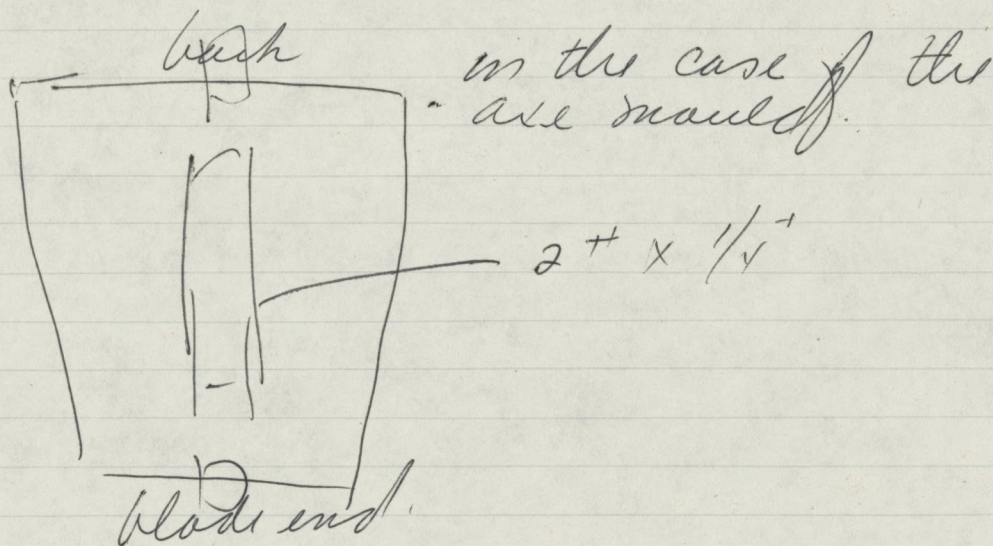 back
in the case of the
axe mould.
2" x
blade end.